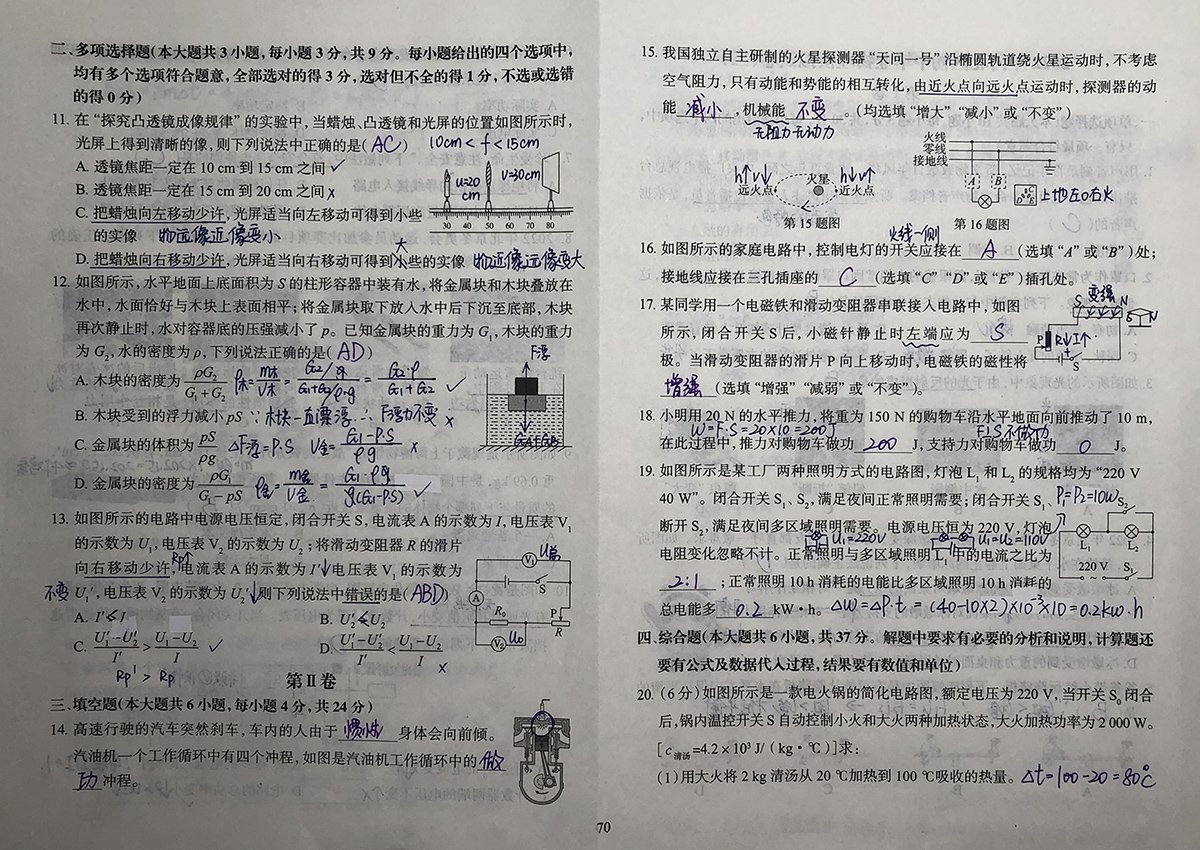 二、多项选择题(本大题共3小题,每小题3分,共9分。每小题给出的四个选项中,
均有多个选项符合题意,全部选对的得3分,选对但不全的得1分,不选或选错
的得0分)
11. 在“探究凸透镜成像规律”的实验中,当蜡烛、凸透镜和光屏的位置如图所示时,
光屏上得到清晰的像,则下列说法中正确的是( AC ) 10cm < f < 15cm
A. 透镜焦距一定在10 cm到15 cm之间 ✓
B. 透镜焦距一定在15 cm到20 cm之间 x
u=20cm v=30cm
30 40 50 60 70 80
C. 把蜡烛向左移动少许,光屏适当向左移动可得到小些
的实像 物远像近像变小
D. 把蜡烛向右移动少许,光屏适当向右移动可得到小些的实像 物近像远像变大
大
12. 如图所示,水平地面上底面积为S的柱形容器中装有水,将金属块和木块叠放在
水中,水面恰好与木块上表面相平;将金属块取下放入水中后下沉至底部,木块
再次静止时,水对容器底的压强减小了p。已知金属块的重力为G₁,木块的重力
为G₂,水的密度为ρ,下列说法正确的是( AD )
F浮
A. 木块的密度为 ρG₂/(G₁+G₂) ρ木=m木/V木=(G₂/g)/((G₁+G₂)/ρg)=G₂·ρ/(G₁+G₂) ✓
B. 木块受到的浮力减小pS ∵木块一直漂浮∴F浮力不变 x
G木+G金
C. 金属块的体积为 pS/ρg ΔF浮=P·S V金=(G₁-P·S)/ρg x
D. 金属块的密度为 ρG₁/(G₁-pS) ρ金=m金/V金=G₁·ρg/g(G₁-P·S) ✓
13. 如图所示的电路中电源电压恒定,闭合开关S,电流表A的示数为I,电压表V₁
的示数为U₁,电压表V₂的示数为U₂;将滑动变阻器R的滑片
向右移动少许,电流表A的示数为I′↓电压表V₁的示数为
Rp↑
不变 U₁′,电压表V₂的示数为U₂′↓则下列说法中错误的是( ABD )
A. I′≤I B. U₂′≤U₂
C. (U₁′-U₂′)/I′ > (U₁-U₂)/I ✓ D. (U₁′-U₂′)/I′ < (U₁-U₂)/I x
Rp′ > Rp
V₁ S A R₀ P R V₂ U₀
第Ⅱ卷
三、填空题(本大题共6小题,每小题4分,共24分)
14. 高速行驶的汽车突然刹车,车内的人由于 惯性 身体会向前倾。
汽油机一个工作循环中有四个冲程,如图是汽油机工作循环中的 做
功 冲程。
15. 我国独立自主研制的火星探测器“天问一号”沿椭圆轨道绕火星运动时,不考虑
空气阻力,只有动能和势能的相互转化,由近火点向远火点运动时,探测器的动
能 减小 ,机械能 不变 。(均选填“增大”“减小”或“不变”)
无阻力无动力
h↑v↓ 火星 h↓v↑
远火点 近火点
第15题图
火线
零线
接地线
A B
C D E
上地左0右火
第16题图
火线一侧
16. 如图所示的家庭电路中,控制电灯的开关应接在 A (选填“A”或“B”)处;
接地线应接在三孔插座的 C (选填“C”“D”或“E”)插孔处。
17. 某同学用一个电磁铁和滑动变阻器串联接入电路中,如图
所示,闭合开关S后,小磁针静止时左端应为 S
极。当滑动变阻器的滑片P向上移动时,电磁铁的磁性将
增强 (选填“增强”“减弱”或“不变”)。
变强
S N
S N
P R↓I↑
S
18. 小明用20 N的水平推力,将重为150 N的购物车沿水平地面向前推动了10 m,
W=F·S=20×10=200J F⊥S不做功
在此过程中,推力对购物车做功 200 J,支持力对购物车做功 0 J。
19. 如图所示是某工厂两种照明方式的电路图,灯泡L₁和L₂的规格均为“220 V
40 W”。闭合开关S₁、S₂,满足夜间正常照明需要;闭合开关S₁、
P₁=P₂=10W
断开S₂,满足夜间多区域照明需要。电源电压恒为220 V,灯泡
U₁=220V U₁=U₂=110V
电阻变化忽略不计。正常照明与多区域照明工作的电流之比为
2:1 ;正常照明10 h消耗的电能比多区域照明10 h消耗的
总电能多 0.2 kW·h。 ΔW=ΔP·t=(40-10×2)×10⁻³×10=0.2kW·h
S₂
L₁ L₂
220 V S₁
四、综合题(本大题共6小题,共37分。解题中要求有必要的分析和说明,计算题还
要有公式及数据代入过程,结果要有数值和单位)
20. (6分)如图所示是一款电火锅的简化电路图,额定电压为220 V,当开关S₀闭合
后,锅内温控开关S自动控制小火和大火两种加热状态,大火加热功率为2 000 W。
[c清汤=4.2×10³ J/(kg·℃)]求:
(1)用大火将2 kg清汤从20 ℃加热到100 ℃吸收的热量。 Δt=100-20=80℃
70